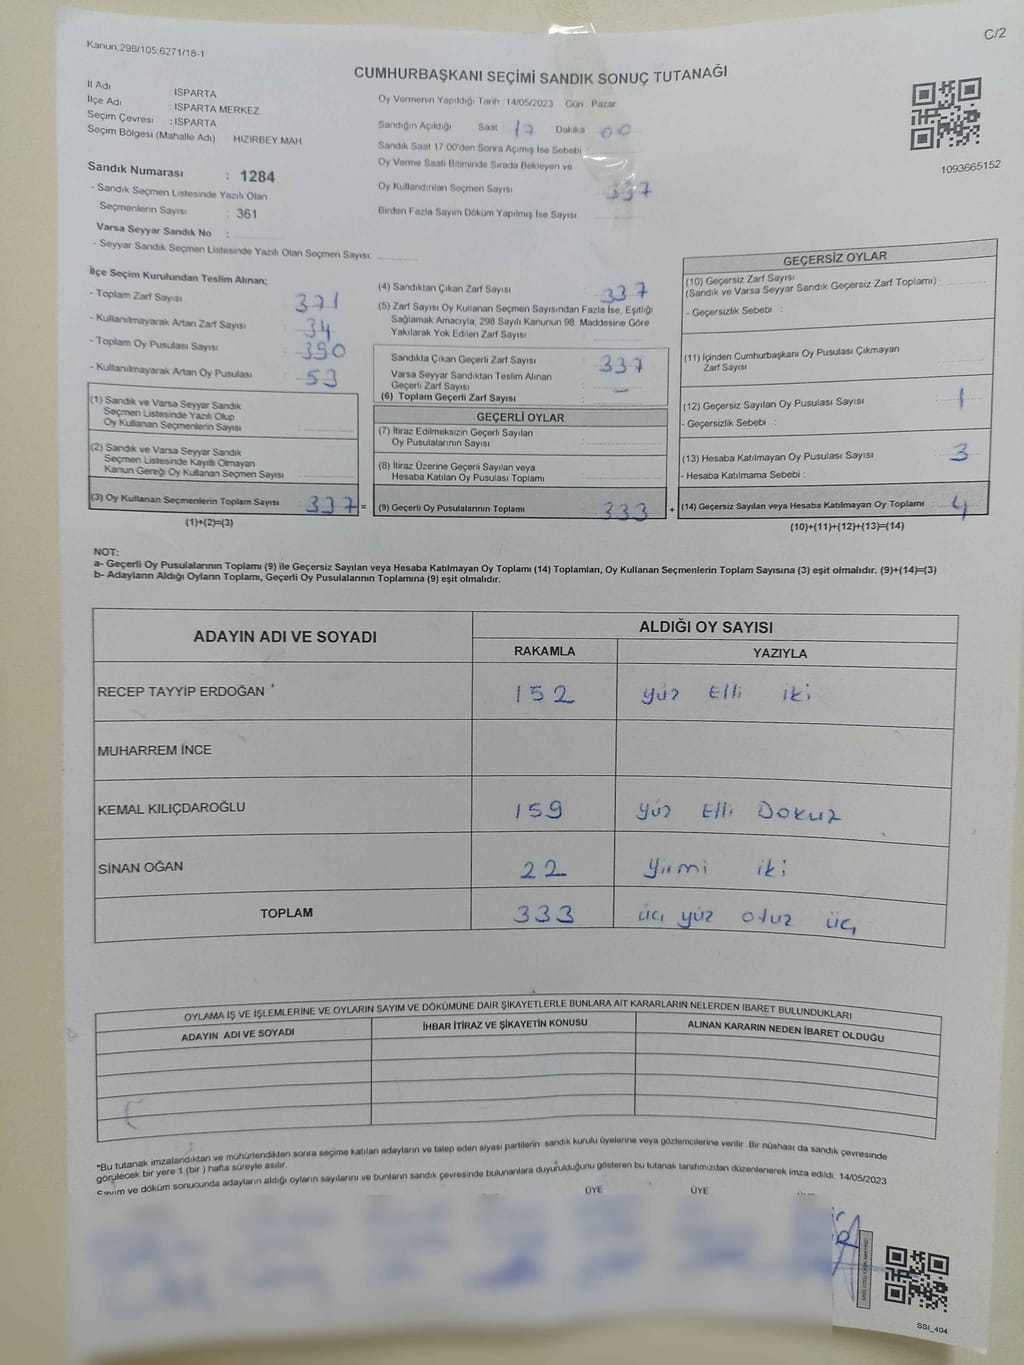 Kanun;298/105;6271/18-1
C/2
CUMHURBAŞKANI SEÇİMİ SANDIK SONUÇ TUTANAĞI
İl Adı : ISPARTA
İlçe Adı : ISPARTA MERKEZ
Seçim Çevresi : ISPARTA
Seçim Bölgesi (Mahalle Adı) : HIZIRBEY MAH.
Sandık Numarası : 1284
- Sandık Seçmen Listesinde Yazılı Olan
Seçmenlerin Sayısı : 361
Varsa Seyyar Sandık No :
- Seyyar Sandık Seçmen Listesinde Yazılı Olan Seçmen Sayısı:
Oy Vermenin Yapıldığı Tarih : 14/05/2023 Gün : Pazar
Sandığın Açıldığı Saat 17 Dakika 00
Sandık Saat 17:00'den Sonra Açımış İse Sebebi :
Oy Verme Saati Bitiminde Sırada Bekleyen ve
Oy Kullandırılan Seçmen Sayısı 337
Birden Fazla Sayım Döküm Yapılmış İse Sayısı
1093665152
İlçe Seçim Kurulundan Teslim Alınan;
- Toplam Zarf Sayısı : 371
- Kullanılmayarak Artan Zarf Sayısı : 34
- Toplam Oy Pusulası Sayısı : 390
- Kullanılmayarak Artan Oy Pusulası : 53
(1) Sandık ve Varsa Seyyar Sandık
Seçmen Listesinde Yazılı Olup
Oy Kullanan Seçmenlerin Sayısı :
(2) Sandık ve Varsa Seyyar Sandık
Seçmen Listesinde Kayıtlı Olmayan
Kanun Gereği Oy Kullanan Seçmen Sayısı :
(3) Oy Kullanan Seçmenlerin Toplam Sayısı : 337 =
(1)+(2)=(3)
(4) Sandıktan Çıkan Zarf Sayısı : 337
(5) Zarf Sayısı Oy Kullanan Seçmen Sayısından Fazla İse, Eşitliği
Sağlamak Amacıyla; 298 Sayılı Kanunun 98. Maddesine Göre
Yakılarak Yok Edilen Zarf Sayısı :
Sandıkta Çıkan Geçerli Zarf Sayısı : 337
Varsa Seyyar Sandıktan Teslim Alınan
Geçerli Zarf Sayısı : –
(6) Toplam Geçerli Zarf Sayısı :
GEÇERLİ OYLAR
(7) İtiraz Edilmeksizin Geçerli Sayılan
Oy Pusulalarının Sayısı :
(8) İtiraz Üzerine Geçerli Sayılan veya
Hesaba Katılan Oy Pusulası Toplamı :
(9) Geçerli Oy Pusulalarının Toplamı : 333 +
GEÇERSİZ OYLAR
(10) Geçersiz Zarf Sayısı
(Sandık ve Varsa Seyyar Sandık Geçersiz Zarf Toplamı) :
- Geçersizlik Sebebi :
(11) İçinden Cumhurbaşkanı Oy Pusulası Çıkmayan
Zarf Sayısı :
(12) Geçersiz Sayılan Oy Pusulası Sayısı : 1
- Geçersizlik Sebebi :
(13) Hesaba Katılmayan Oy Pusulası Sayısı : 3
- Hesaba Katılmama Sebebi :
(14) Geçersiz Sayılan veya Hesaba Katılmayan Oy Toplamı : 4
(10)+(11)+(12)+(13)=(14)
NOT:
a- Geçerli Oy Pusulalarının Toplamı (9) ile Geçersiz Sayılan veya Hesaba Katılmayan Oy Toplamı (14) Toplamları, Oy Kullanan Seçmenlerin Toplam Sayısına (3) eşit olmalıdır. (9)+(14)=(3)
b- Adayların Aldığı Oyların Toplamı, Geçerli Oy Pusulalarının Toplamına (9) eşit olmalıdır.
ADAYIN ADI VE SOYADI ALDIĞI OY SAYISI
RAKAMLA YAZIYLA
RECEP TAYYİP ERDOĞAN 152 yüz Elli iki
MUHARREM İNCE
KEMAL KILIÇDAROĞLU 159 yüz Elli Dokuz
SİNAN OĞAN 22 yirmi iki
TOPLAM 333 üç yüz otuz üç
OYLAMA İŞ VE İŞLEMLERİNE VE OYLARIN SAYIM VE DÖKÜMÜNE DAİR ŞİKAYETLERLE BUNLARA AİT KARARLARIN NELERDEN İBARET BULUNDUKLARI
ADAYIN ADI VE SOYADI İHBAR İTİRAZ VE ŞİKAYETİN KONUSU ALINAN KARARIN NEDEN İBARET OLDUĞU
*Bu tutanak imzalandıktan ve mühürlendikten sonra seçime katılan adayların ve talep eden siyasi partilerin sandık kurulu üyelerine veya gözlemcilerine verilir. Bir nüshası da sandık çevresinde
görülecek bir yere 1 (bir ) hafta süreyle asılır.
Sayım ve döküm sonucunda adayların aldığı oyların sayılarını ve bunların sandık çevresinde bulunanlara duyurulduğunu gösteren bu tutanak tarafımızdan düzenlenerek imza edildi. 14/05/2023
ÜYE ÜYE
SSI_404